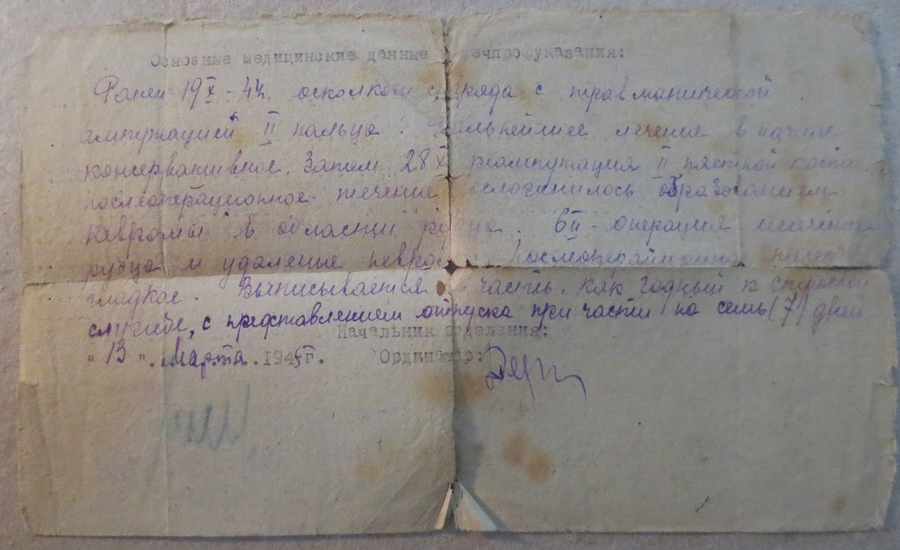 Основные медицинские данные лечпрофуказания:
Ранен 19 X - 44. осколком снаряда с травматической
ампутацией II пальца. Дальнейшее лечение в начале
консервативное. Затем 28 X реампутация II пястной кости
послеоперационное течение осложнилось образованием
невромы в области рубца. 6 II - операция иссечение
рубца и удаление невромы. Послеоперационное течение
гладкое. Выписывается в часть, как годный к строевой
службе, с представлением отпуска при части на семь (7) дней
Начальник отделения:
"13". Марта. 1945г. Ординатор: